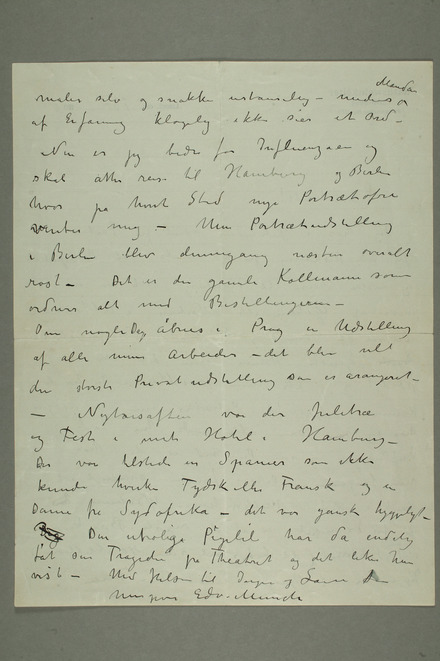 Mandan
maler selv og snakke ustanselig – mens
af Erfaring klogelig ikke sier et Ord –
Nu er jeg bedre for Influenzaen og
skal atter reise til Hamburg og Berlin
hvor på hvert Sted nye Portrætofre
venter mig – Min Portrætudstilling
i Berlin blev dennegang næsten overalt
rost – Det er den gamle Kollmann som
ordner alt med Bestillingerne –
Om nogle Dag åbnes i Prag en Udstilling
af alle mine Arbeider – det blir vel
den største Privatudstilling som er arangeret –
– Nytårsaften var der Juletræ
og Fest i mit Hotel i Hamburg –
Der var tilstede en Spanier som ikke
kunde hverken Tydsk eller Fransk og en
Dame fra Sydafrika – det var ganske hyggeligt –
Den urolige Pigelil har da endelig
fåt sin Tragedie på Theatret og det liker hun
vist – Med Hilsen til Inger og
Edv. Munch